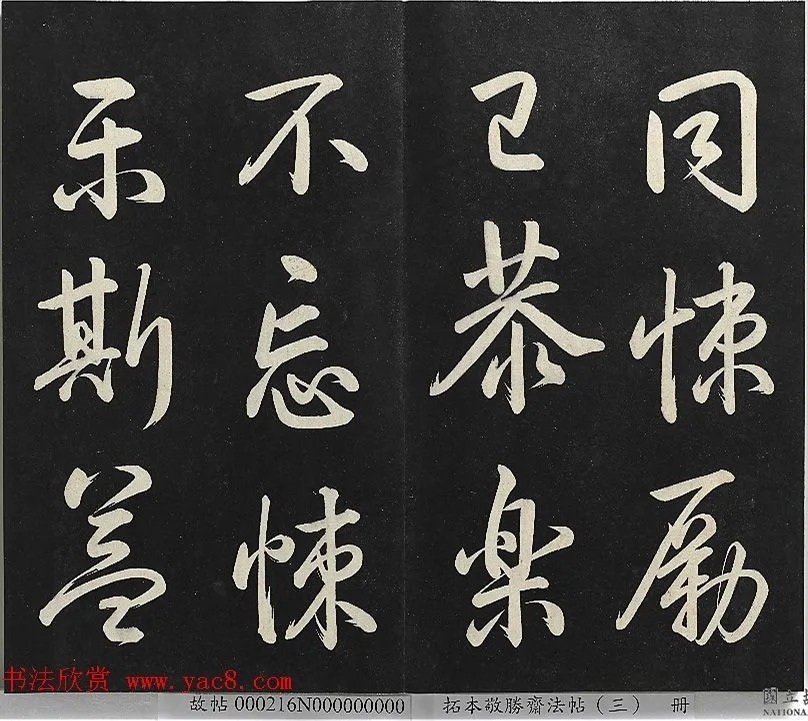 同悚励
已恭楽
不忘悚
乐斯益
书法欣赏 www.yac8.com
故帖 000216N000000000
拓本敬勝齋法帖(三) 册
國立
NATIONA